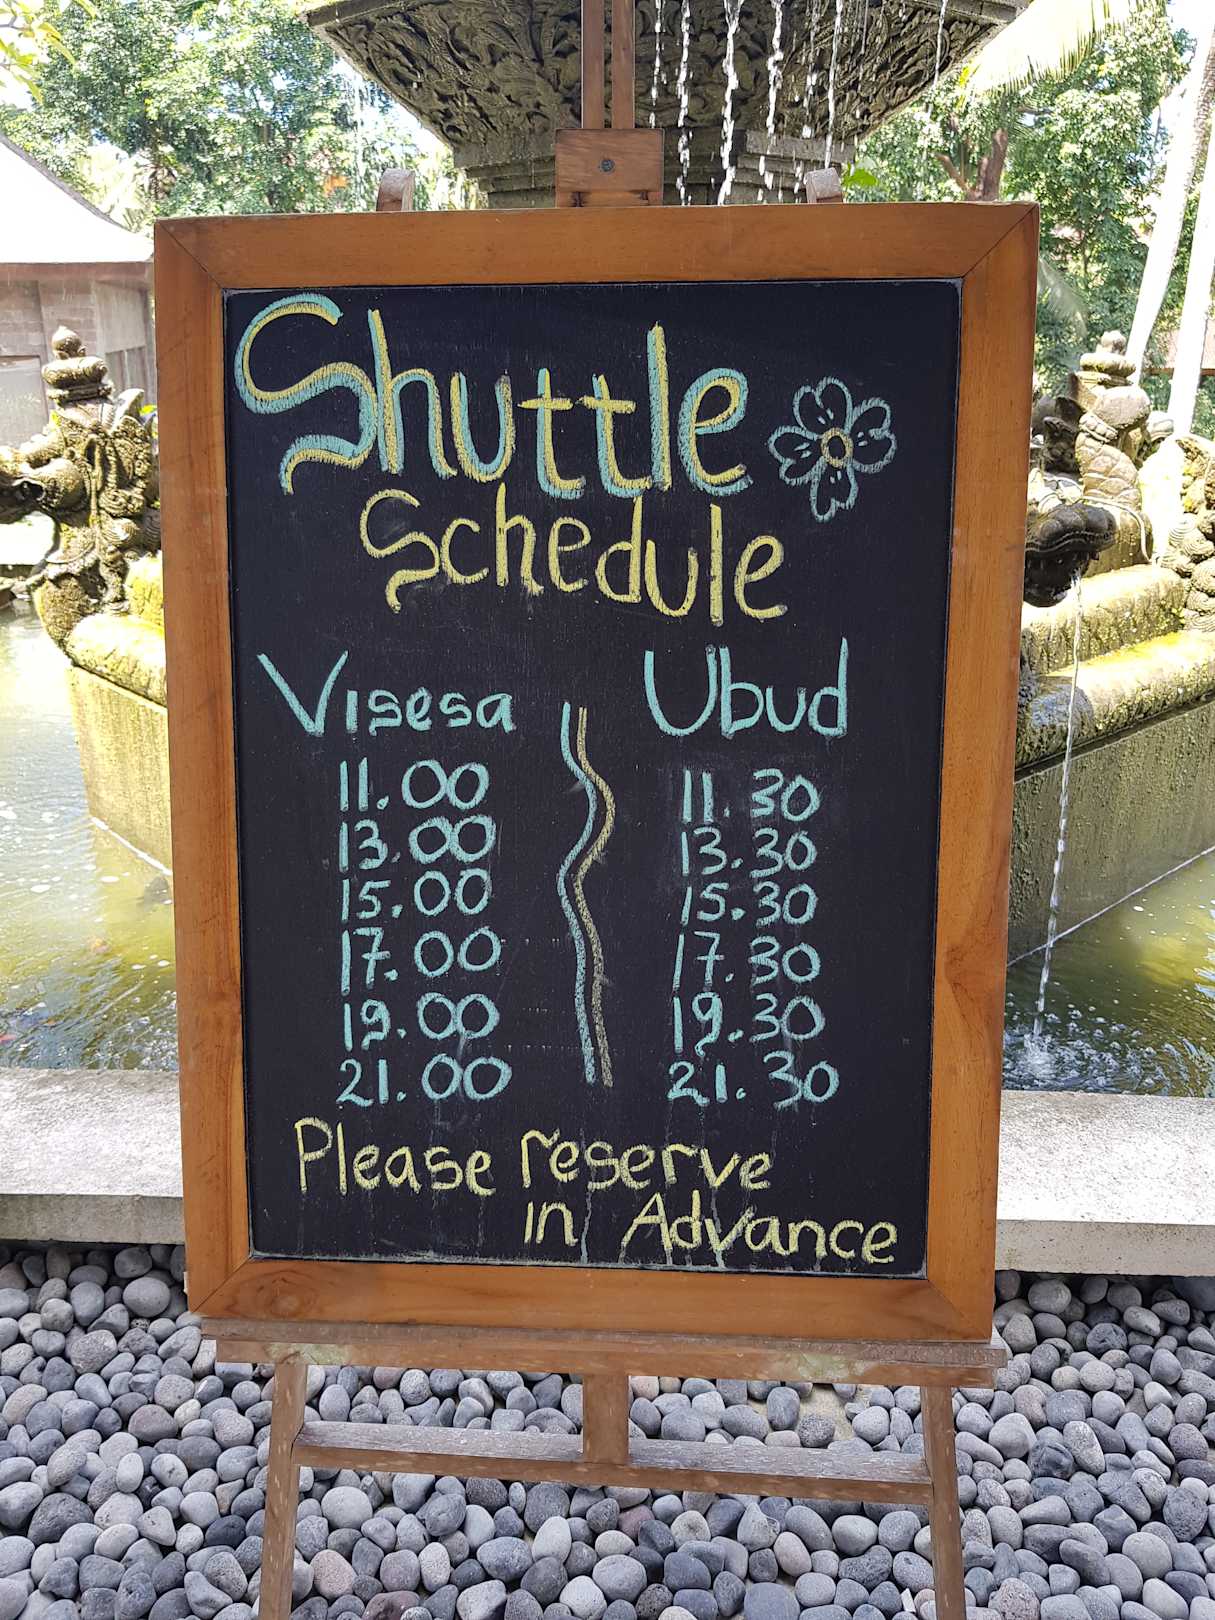 Shuttle
Schedule
Visesa Ubud
11.00 11.30
13.00 13.30
15.00 15.30
17.00 17.30
19.00 19.30
21.00 21.30
Please reserve
in Advance